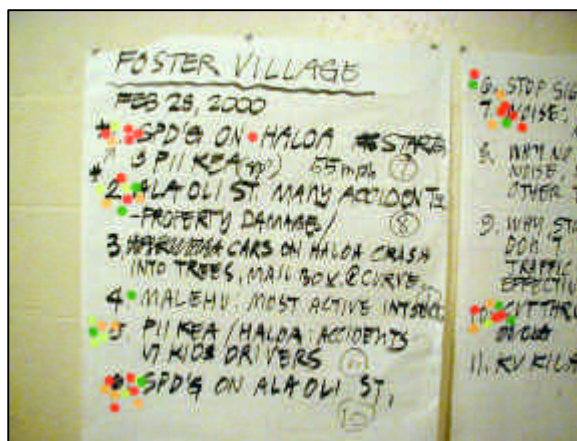 FOSTER VILLAGE
FEB 28, 2000
SPD'G ON HALOA START@
PIIKEA 55 mph 7
2. ALAOLI ST MANY ACCIDENTS
-PROPERTY DAMAGE/ 8
3. CARS ON HALOA CRASH
INTO TREES, MAIL BOX @ CURVE
4. MALEHU: MOST ACTIVE
5. PIIKEA / HALOA: ACCIDENTS
KIDS DRIVERS
SPD'G ON ALAOLI ST,
10
6. STOP
7. NOISE:
8. WHY NO
NOISE,
OTHER
9. WHY
DON'T
TRAFFIC
10. CUT THR
11.